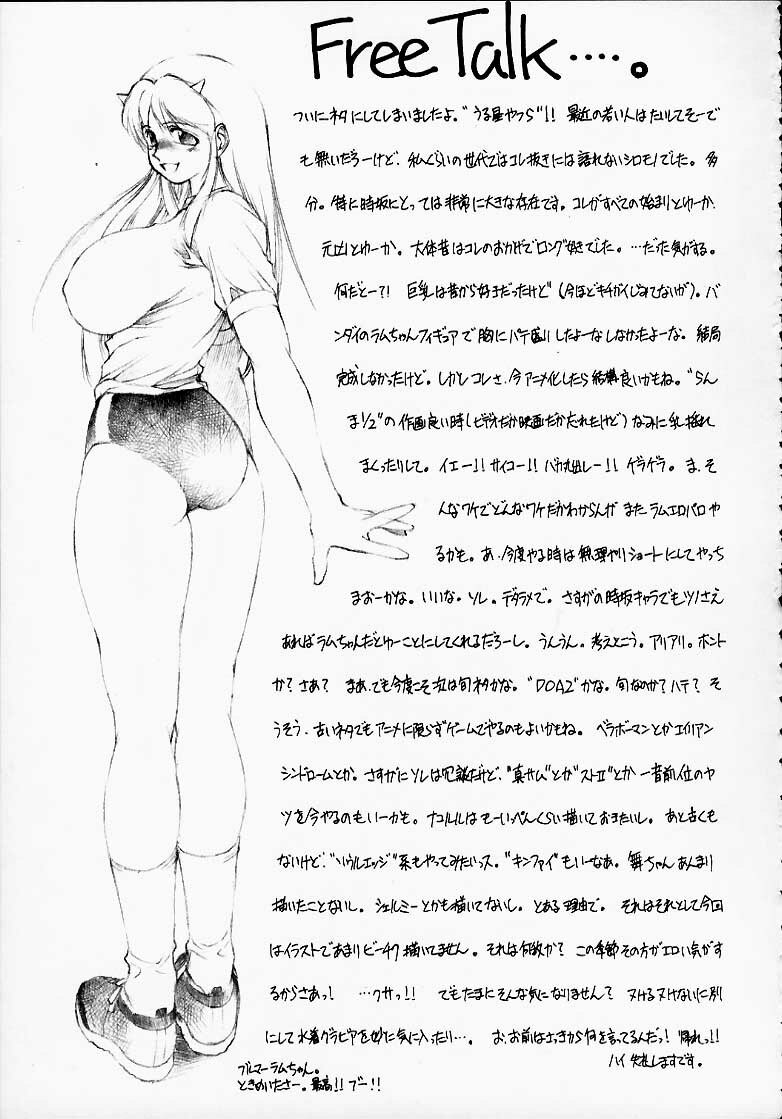 Free Talk‥‥。
ついにネタにしてしまいましたよ。“うる星やつら”!! 最近の若い人はたいしてそーで
も無いだろーけど、私ぐらいの世代ではコレ抜きには語れないシロモノでした。多
分。特に時坂にとっては非常に大きな存在です。コレがすべての始まりとゆーか、
元凶とゆーか。大体昔はコレのおかげでロング好きでした。…だった気がする。
何だとー?! 巨乳は昔から好きだったけど(今ほどキチガイじみてないが)。バ
ンダイのラムちゃんフィギュアで胸にパテ盛りしたよーなしなかったよーな。結局
完成しなかったけど。しかしコレさ、今アニメ化したら結構良いかもね。“らん
ま1/2”の作画良い時(ビデオだか映画だか忘れたけど)なみに乳揺れ
まくったりして。イエー!! サイコー!! バカ丸出しー!! ゲラゲラ。ま、そ
んなワケでどんなワケだかわからんが またラムエロパロや
るかも。あ、今度やる時は無理やりショートにしてやっち
まおーかな。いいな。ソレ。デタラメで。さすがの時坂キャラでもツノさえ
あればラムちゃんだとゆーことにしてくれるだろーし。うんうん。考えとこう。アリアリ。ホント
か?さあ? まあ、でも今度こそ次は旬ネタかな。“DOA2”かな。旬なのか?ハテ?そ
うそう、古いネタでもアニメに限らずゲームでやるのもよいかもね。ベラボーマンとかエイリアン
シンドロームとか。さすがにソレは冗談だけど、“真サム”とか“ストⅡ”とか 一昔前位のヤ
ツを今やるのもいーかも。ナコルルはもーいっぺんくらい描いておきたいし。あと古くも
ないけど、“ソウルエッジ”系もやってみたいっス。“キンファイ”もいーなあ。舞ちゃんあんまり
描いたことないし。シェルミーとかも描いてないし。とある理由で。それはそれとして今回
はイラストであまりビーチク描いてません。それは何故か? この季節その方がエロい気がす
るからさあっ! …クサっ!! でもたまにそんな気になりません? ヌけるヌけないに別
にして水着グラビアを妙に気に入ったり…。お、お前はさっきから何を言ってるんだっ!帰れっ!!
ハイ 失礼しますです。
ブルマーラムちゃん。
ときめいたさー。最高!!ブー!!